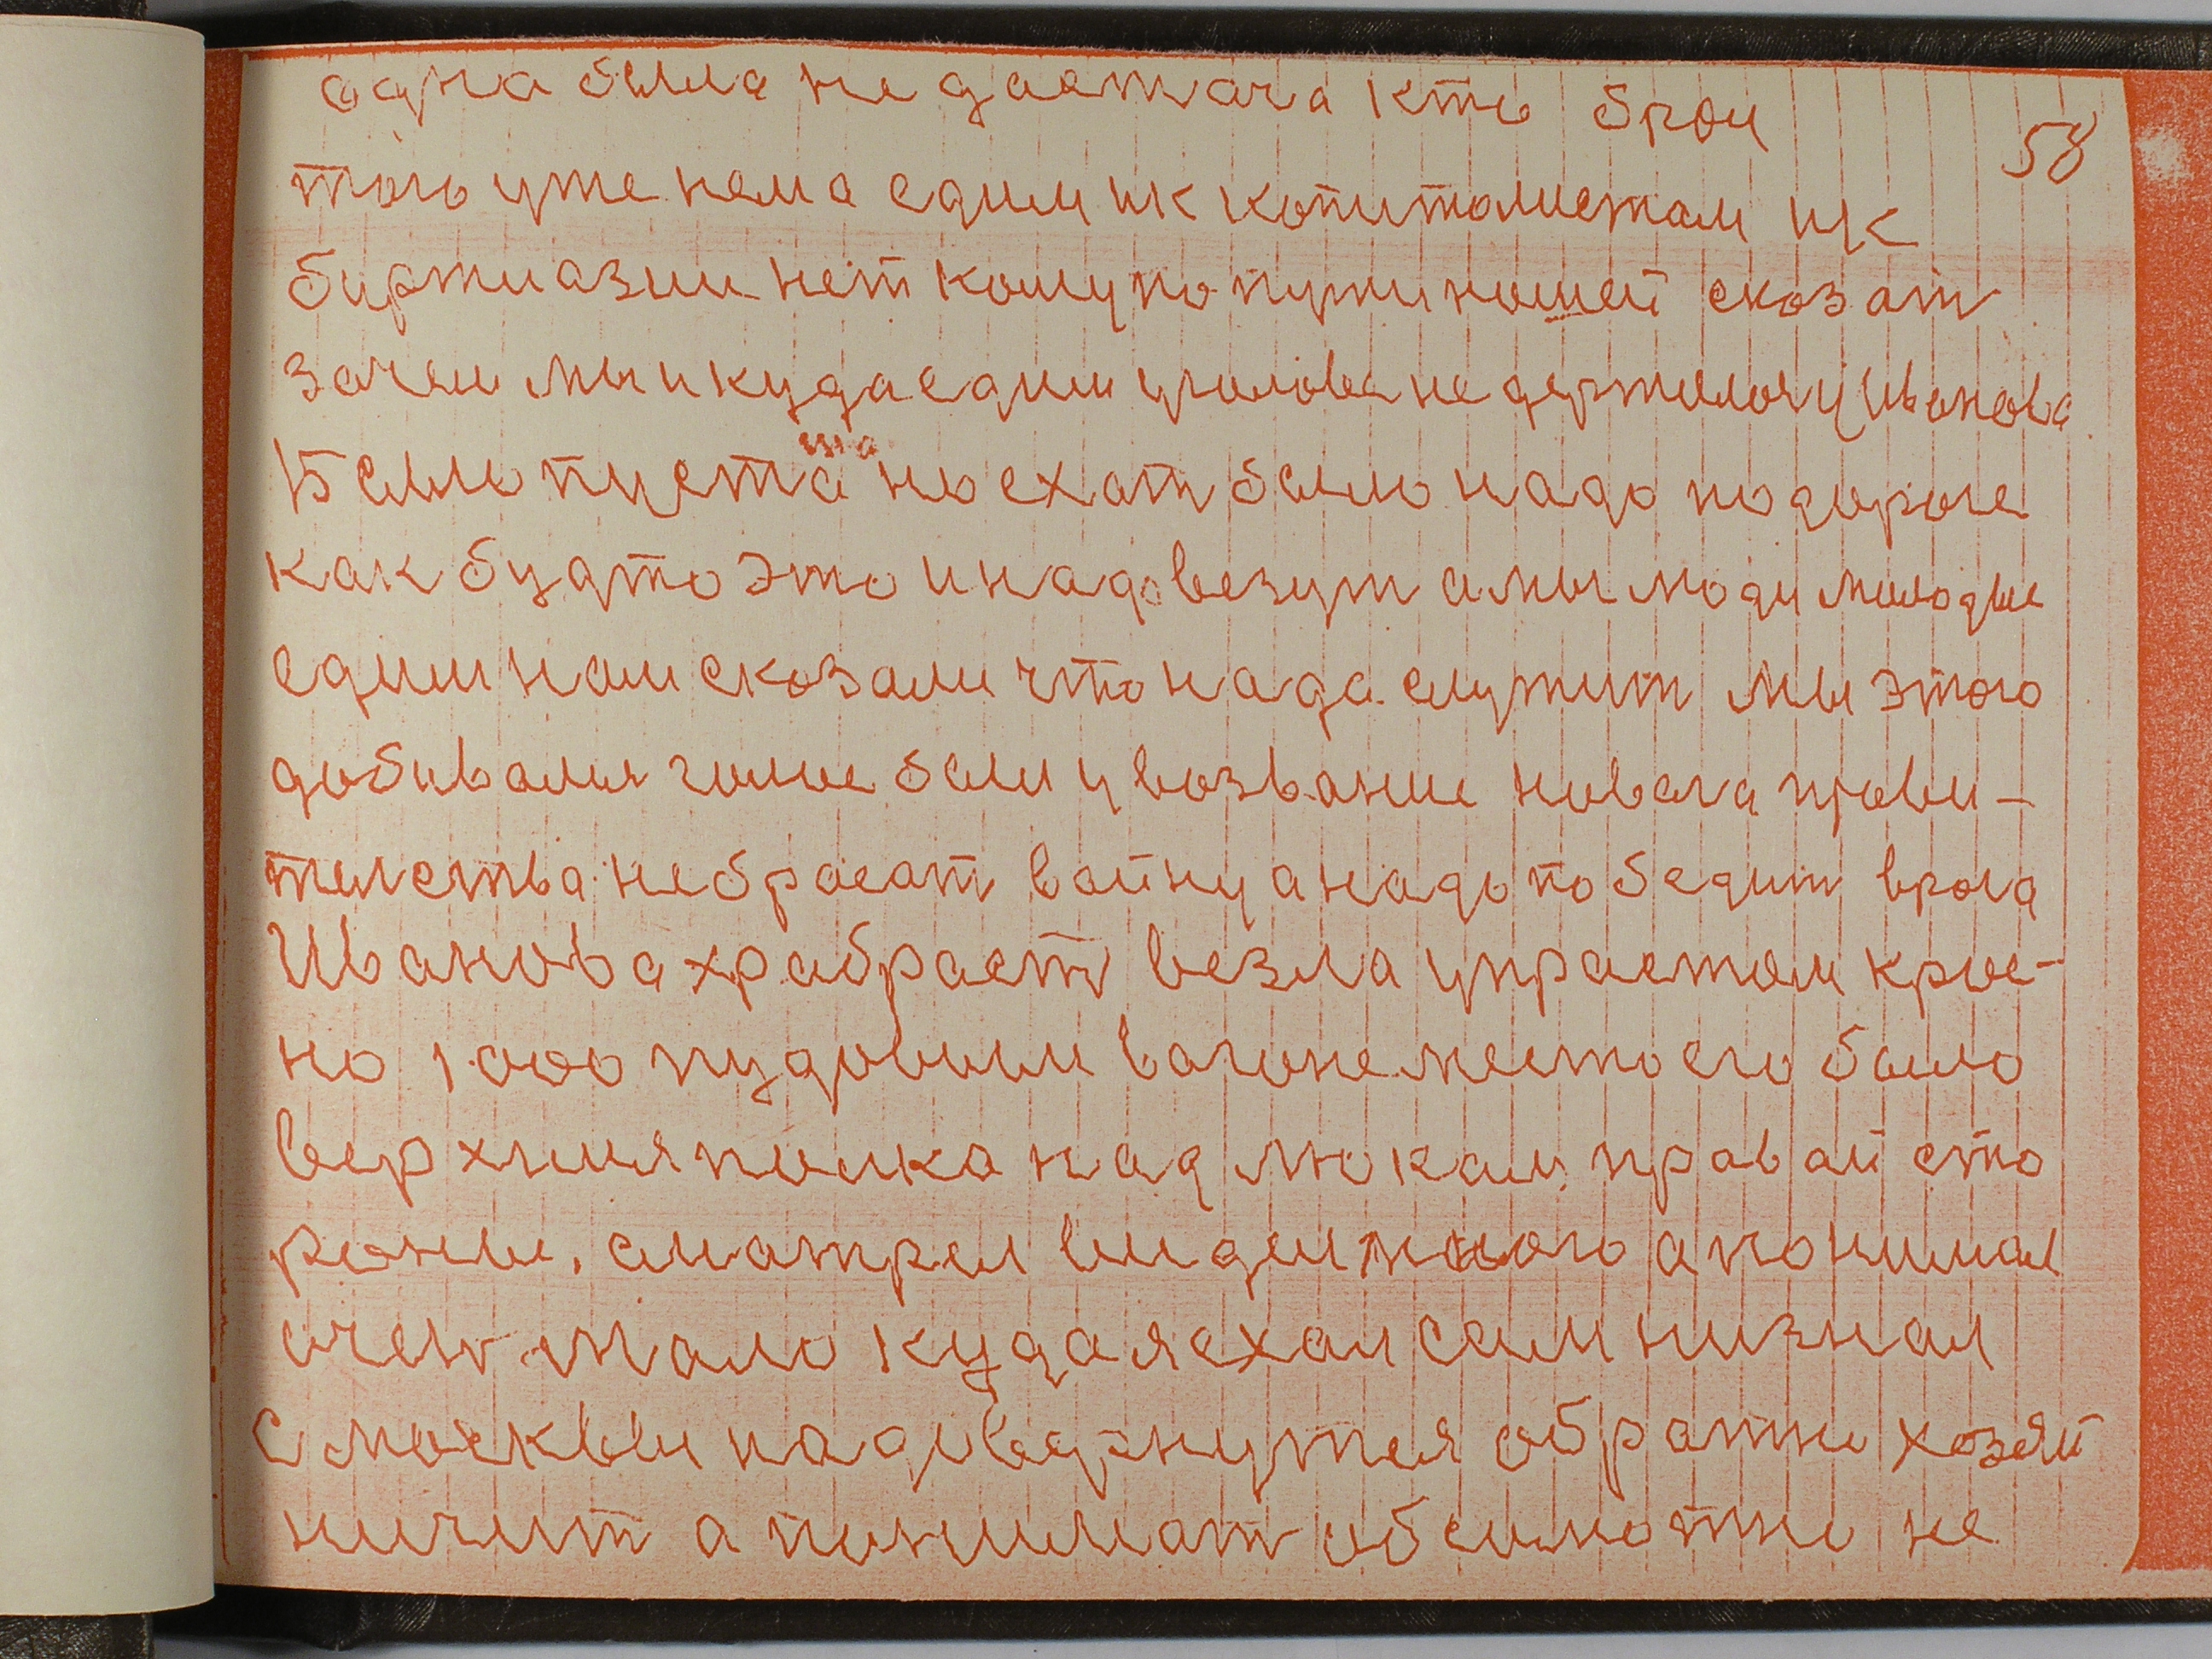 одна была не дастача кто брои
58
того уже нема едим ик копитолистам ик
биржиазии нет кому по пути нашей сказат
зачем мы и куда едим уголова не держалося у Иванова
было пуста ета но ехат было надо по дороге
как будто это и надо везут а мы люди молодые
едим нам сказали что нада служит мы этого
добивалися голие были у возвание новага прови-
телства не бросат войну а надо победит врага
Иванова храбраст везла упрастом крас-
но 1.000 пудовым вагоне место его было
верхняя полка над люкам правай сто
роны, сматрел видел много а понимал
очен мало куда я ехал сам низнал
с москвы надо вернутся обратно хозяй
ничит а понимат обсалютно не